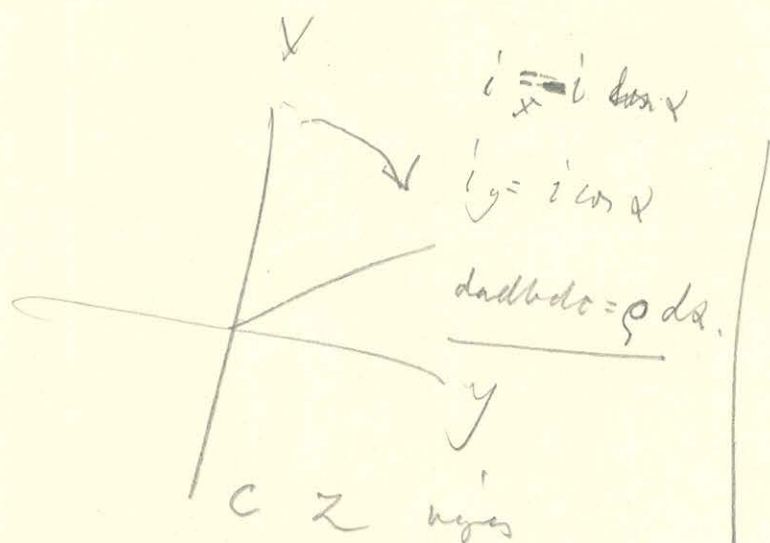 X
i_x = - i sin α
i_y = i cos α
da db dc = ρ dα.
y
C Z